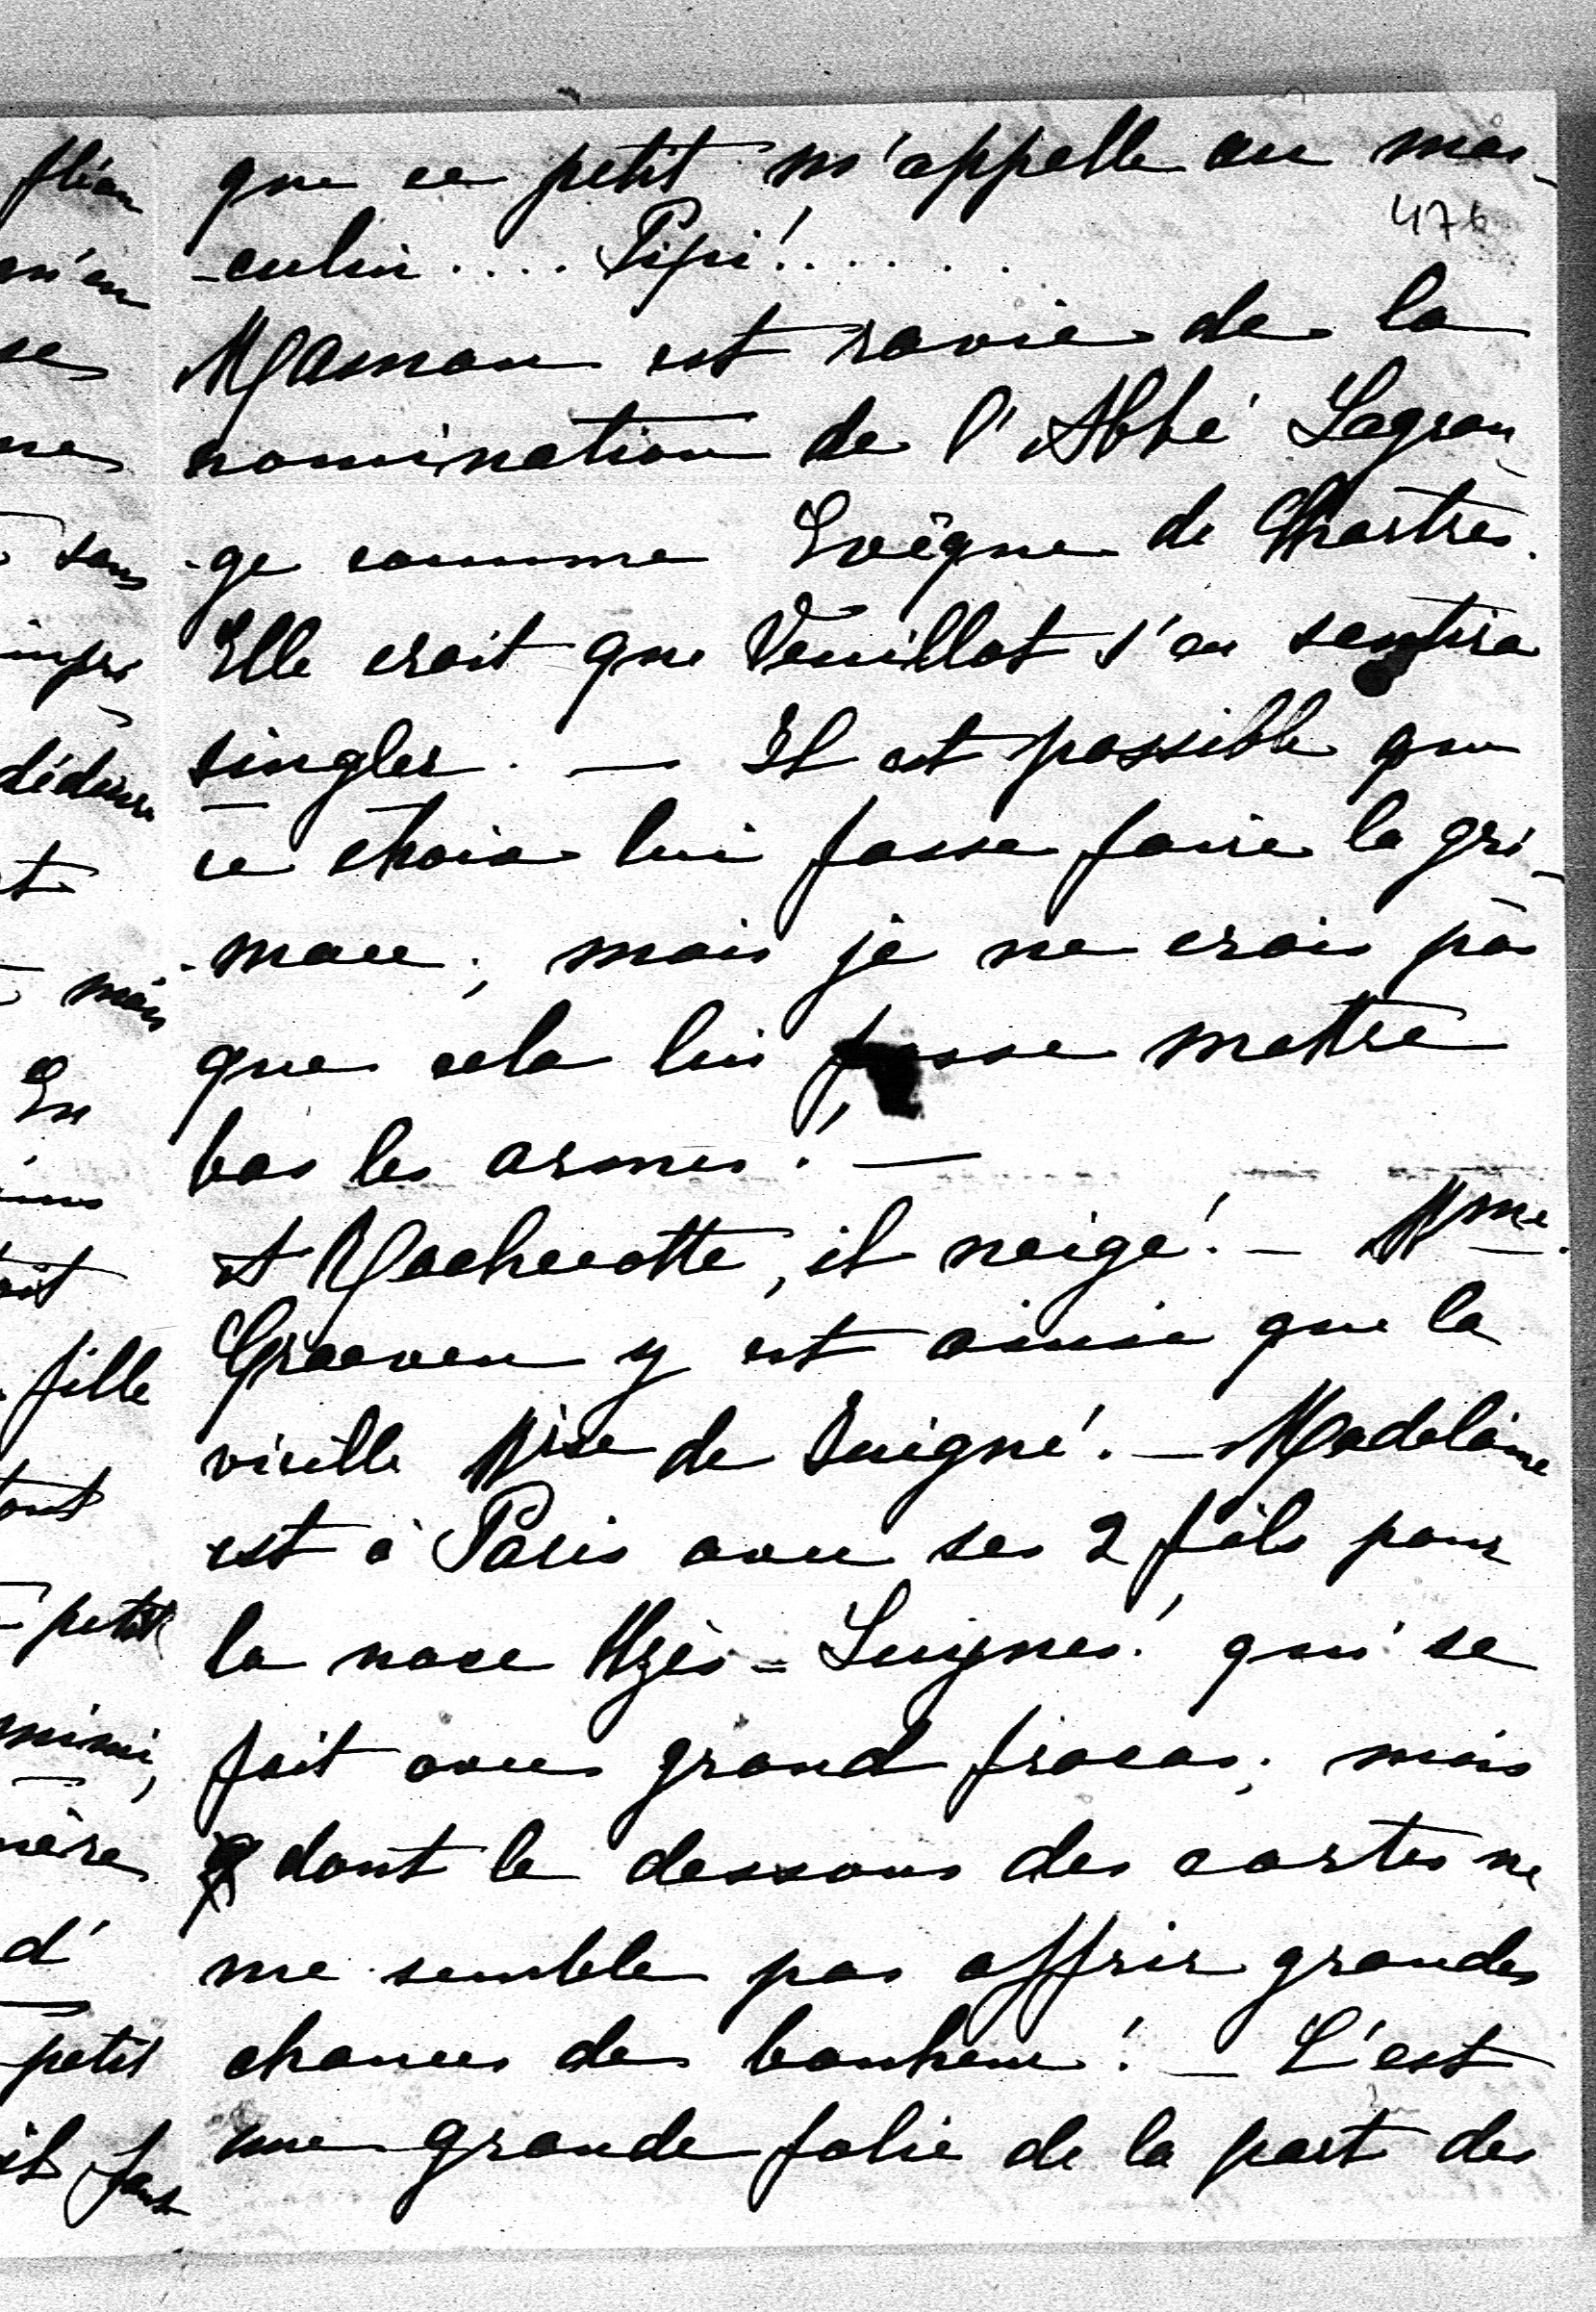 que ce petit m'appelle au mas-
476
-culin.... Pipi!......
Maman est ravie de la
nomination de l'Abbé Lagran-
-ge comme Evêque de Chartres.
Elle croit que Veuillot s'en sentira
singler. — Il est possible que
ce choix lui fasse faire la gri-
-mace; mais je ne crois pas
que cela lui fasse mettre
bas les armes! —
A Rochecotte, il neige! — Mme.
Graeven y est ainsi que la
vieille Mise de Juigné. — Madelaine
est à Paris avec ses 2 fils pour
la noce Uzès-Luynes! qui se
fait avec grand fracas; mais
dont le dessous des cartes ne
me semble pas offrir grandes
chances de bonheur! — C'est
une grande folie de la part des
fléau
m'en
se
me
sans
impr
t
mais
En
fille
tout
petit
mimi,
mère
d'
petit
il faut